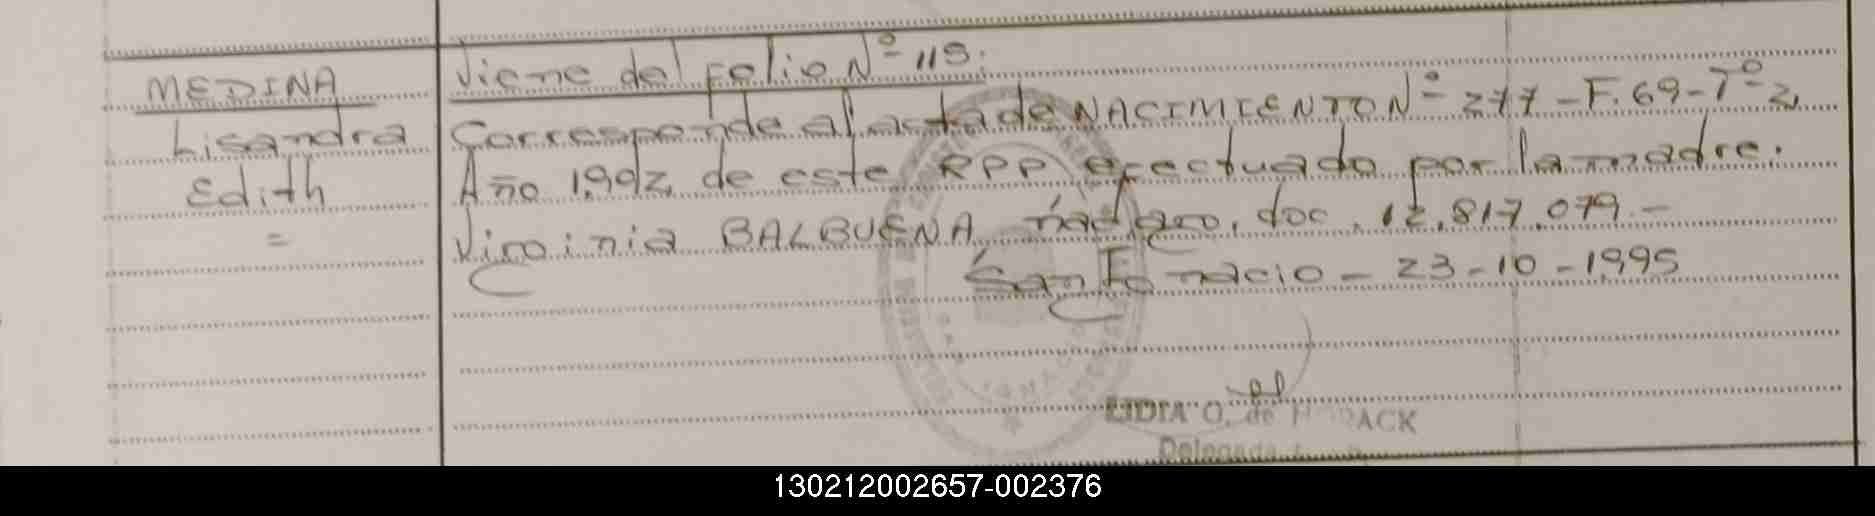 MEDINA
Lisandra
Edith
=
Viene del Folio Nº 119.
Corresponde al acta de NACIMIENTO Nº 277 - F. 69 - Tº 2,
Año 1,992 de este RPP efectuado por la madre.
Virginia BALBUENA doc. 12.817.079.-
San Ignacio - 23-10-1995
LIDIA O. de
Delegada
130212002657-002376